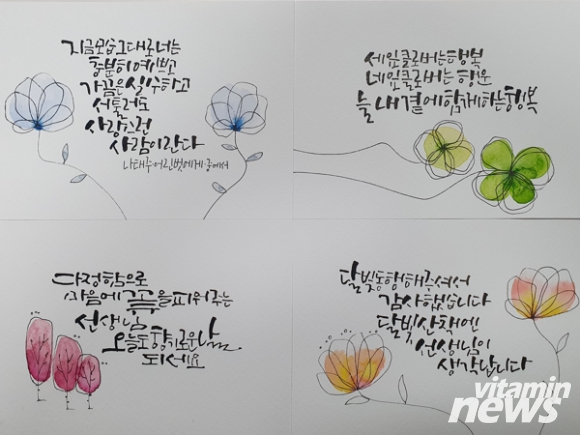 지금모습그대로너는
충분히예쁘고
가끔은실수하고
서툴러도
사랑스런
사람이란다
나태주 어린벗에게 중에서
세잎클로버는행복
네잎클로버는 행운
늘 내 곁에함께하는행복
다정함으로
마음에 꽃을피워주는
선생님
오늘도향기로운날
되세요
달빛동행해주셔서
감사했습니다
달빛산책엔
선생님이
생각납니다
vitamin
news